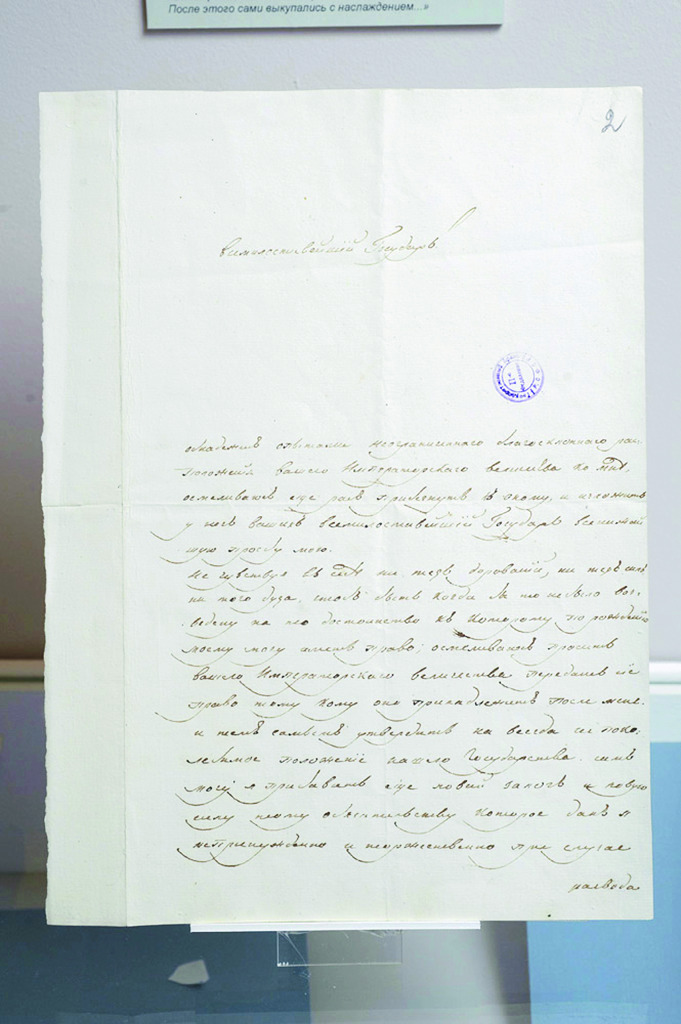 После этого сами выкупались с наслаждением...»
2
Всемилостивейшій Государь!
обнадеженъ опытами неограниченнаго благосклоннаго рас-
положенія вашего Императорскаго величества ко мнѣ,
осмеливаюсь еще разъ прибегнуть къ оному, и изложить
у ногъ вашихъ всемилостивейшій Государь всенижай
шую прозбу мою.
Не чувствуя въ себѣ ни техъ дарованій, ни техъ силъ
ни того духа, чтобъ быть когда бы то ни было воз-
ведену на то достоинство къ которому по рожденію
моему могу иметь право; осмеливаюсь просить
вашего Императорскаго величества передать сіе
право тому кому оно принадлежитъ после меня.
и темъ самымъ утвердить на всегда не поко-
лебимое положеніе нашего Государства. симъ
могу я прибавить еще новый залогъ и новую
силу тому обязательству которое далъ я
непринужденно и торжественно при случае
развода